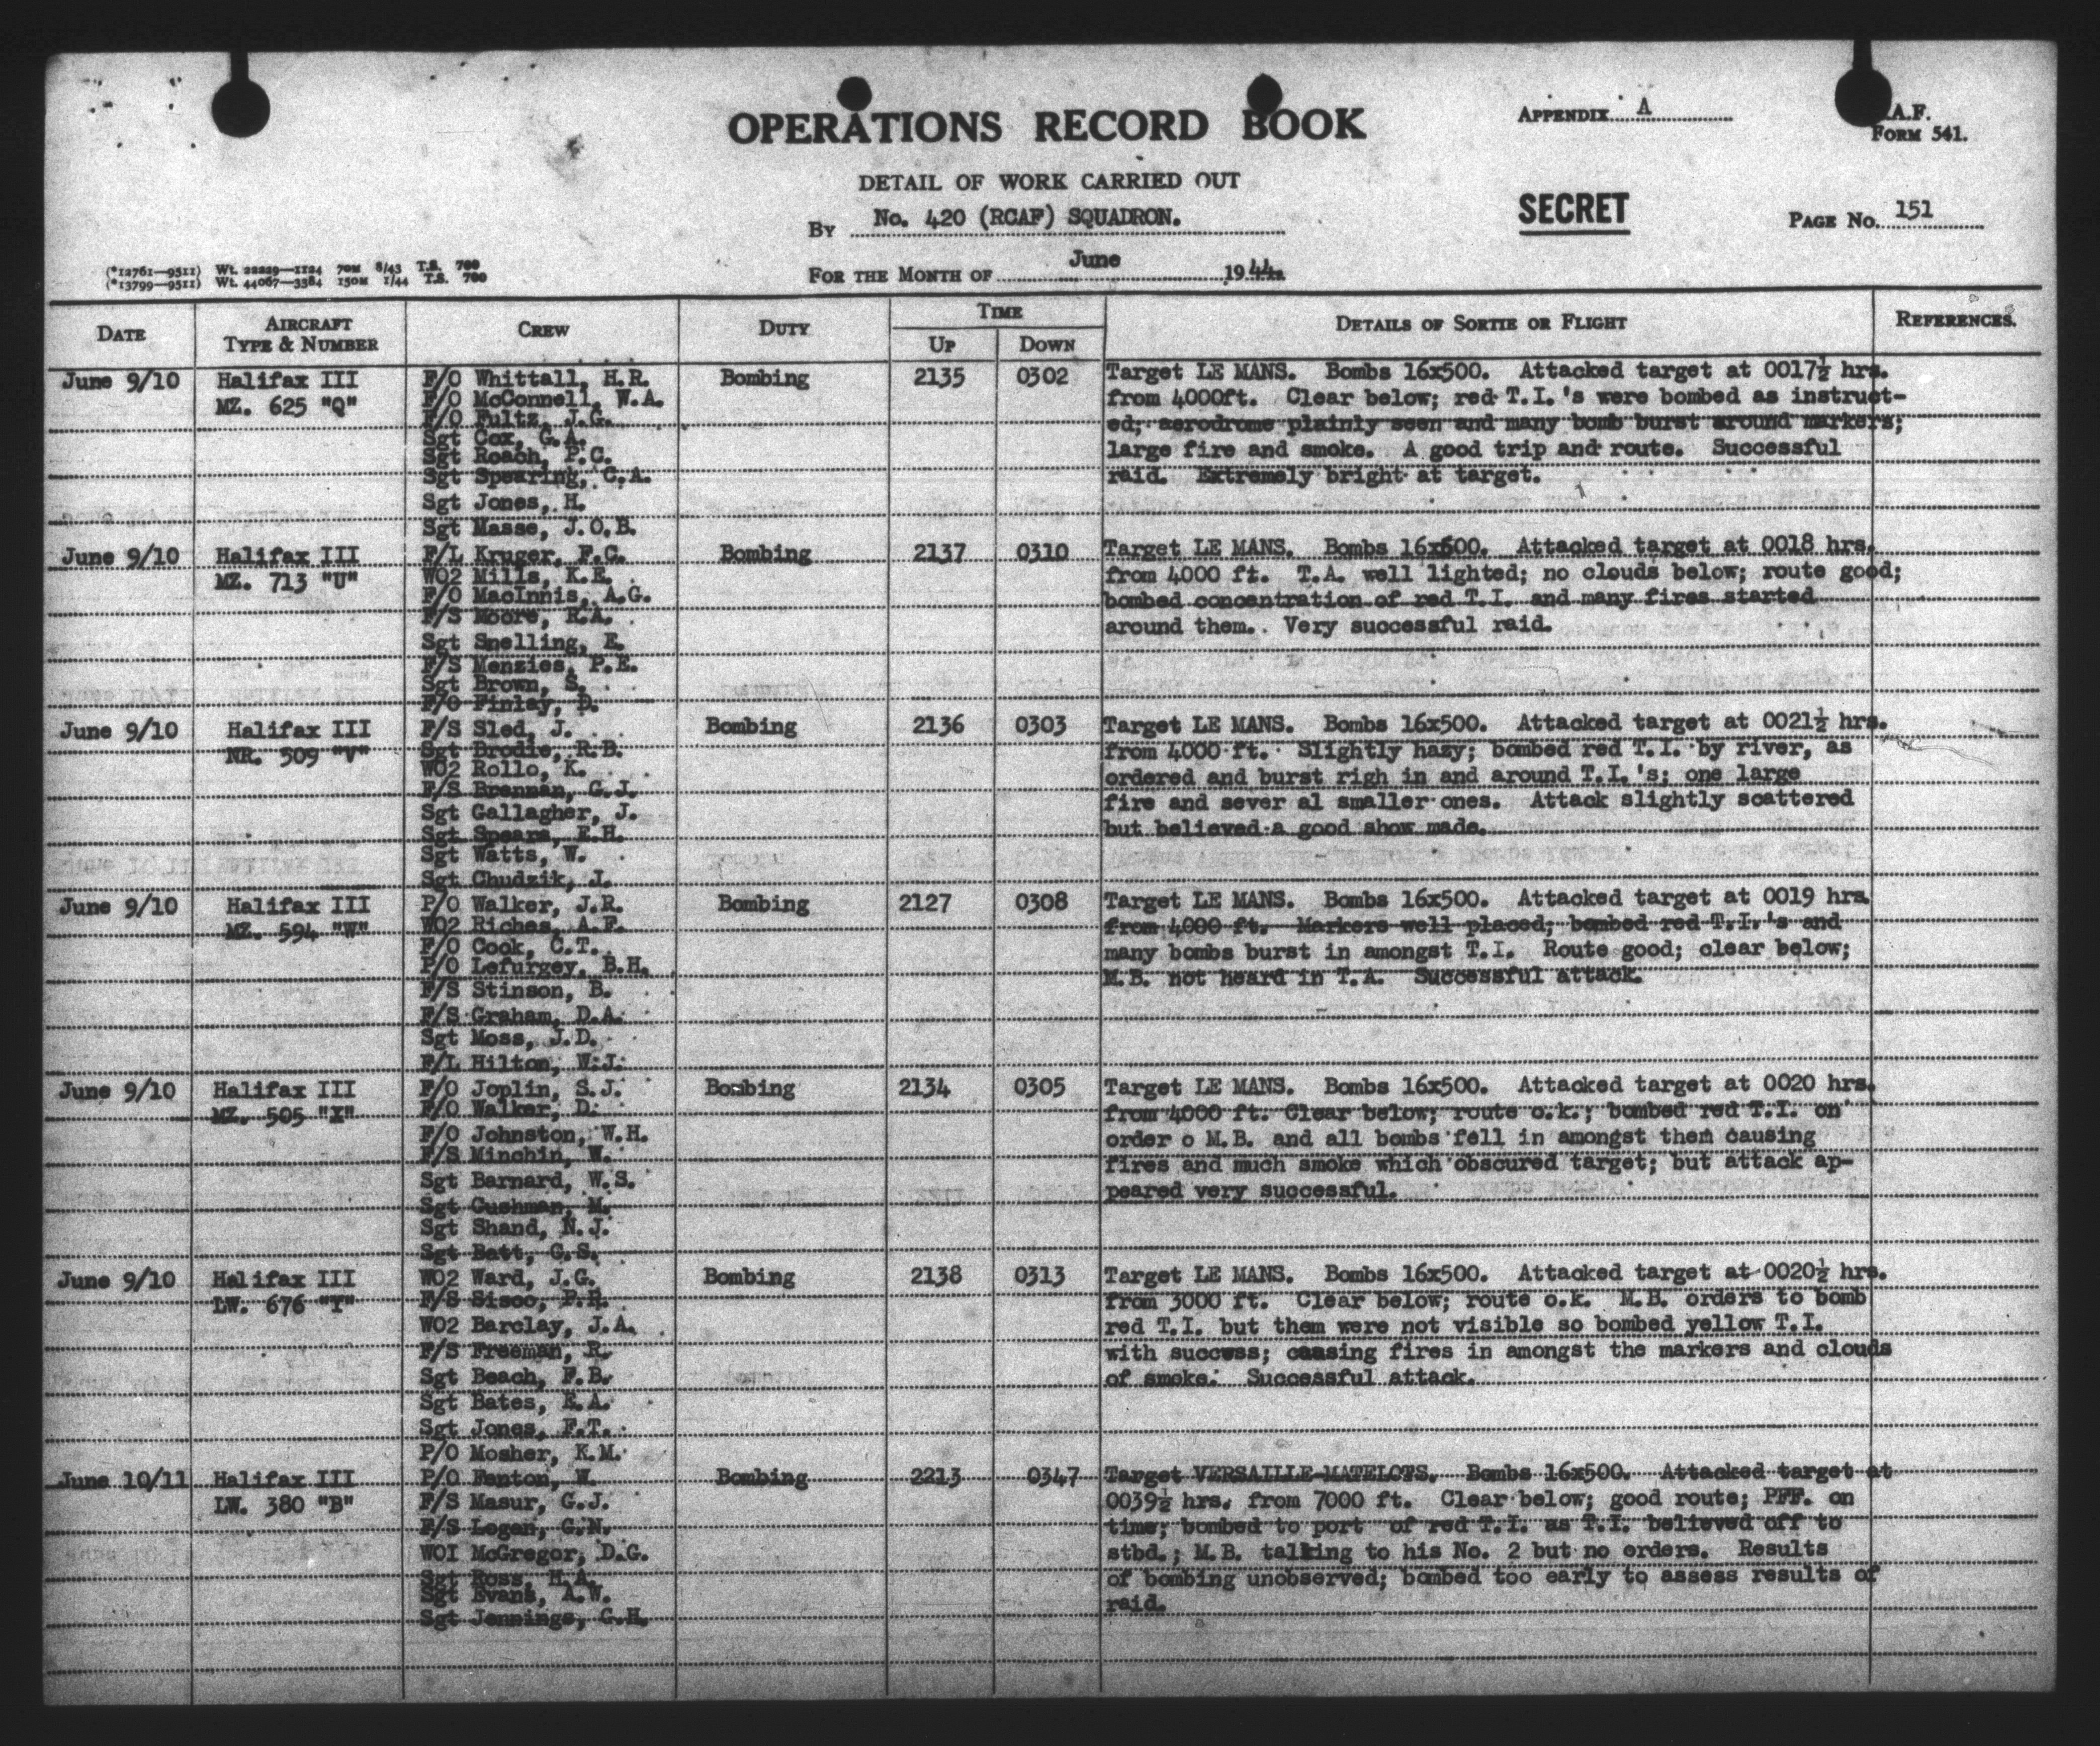 OPERATIONS RECORD BOOK
APPENDIX A
A.F.
FORM 541.
DETAIL OF WORK CARRIED OUT
By No. 420 (RCAF) SQUADRON.
SECRET
PAGE No. 151
(*12761—9511) Wt. 22229—1124 70M 8/43 T.S. 700
(*13799—9511) Wt. 44067—3384 150M 1/44 T.S. 700
FOR THE MONTH OF June 1944.
DATE
AIRCRAFT TYPE & NUMBER
CREW
DUTY
TIME
UP
DOWN
DETAILS OF SORTIE OR FLIGHT
REFERENCES.
June 9/10
Halifax III
MZ. 625 "Q"
F/O Whittall, H.R.
F/O McConnell, W.A.
F/O Fultz, J.G.
Sgt Cox, G.A.
Sgt Roach, P.C.
Sgt Spearing, C.A.
Sgt Jones, H.
Sgt Masse, J.O.B.
Bombing
2135
0302
Target LE MANS. Bombs 16x500. Attacked target at 0017½ hrs.
from 4000ft. Clear below; red T.I.'s were bombed as instruct-
ed; aerodrome plainly seen and many bomb burst around markers;
large fire and smoke. A good trip and route. Successful
raid. Extremely bright at target.
June 9/10
Halifax III
MZ. 713 "U"
F/L Kruger, F.C.
WO2 Mills, K.E.
F/O MacInnis, A.G.
F/S Moore, R.A.
Sgt Snelling, E.
F/S Menzies, P.E.
Sgt Brown, S.
F/O Finlay, D.
Bombing
2137
0310
Target LE MANS. Bombs 16x500. Attacked target at 0018 hrs.
from 4000 ft. T.A. well lighted; no clouds below; route good;
bombed concentration of red T.I. and many fires started
around them. Very successful raid.
June 9/10
Halifax III
NR. 509 "V"
F/S Sled, J.
Sgt Brodie, R.B.
WO2 Rollo, K.
F/S Brennan, G.J.
Sgt Gallagher, J.
Sgt Spears, E.H.
Sgt Watts, W.
Sgt Chudzik, J.
Bombing
2136
0303
Target LE MANS. Bombs 16x500. Attacked target at 0021½ hrs.
from 4000 ft. Slightly hazy; bombed red T.I. by river, as
ordered and burst righ in and around T.I.'s; one large
fire and sever al smaller ones. Attack slightly scattered
but believed a good show made.
June 9/10
Halifax III
MZ. 594 "W"
P/O Walker, J.R.
WO2 Riches, A.F.
F/O Cook, C.T.
P/O Lefurgey, B.H.
F/S Stinson, B.
F/S Graham, D.A.
Sgt Moss, J.D.
F/L Hilton, W.J.
Bombing
2127
0308
Target LE MANS. Bombs 16x500. Attacked target at 0019 hrs.
from 4000 ft. Markers well placed; bombed red T.I.'s and
many bombs burst in amongst T.I. Route good; clear below;
M.B. not heard in T.A. Successful attack.
June 9/10
Halifax III
MZ. 505 "X"
F/O Joplin, S.J.
F/O Walker, D.
F/O Johnston, W.H.
F/S Minchin, W.
Sgt Barnard, W.S.
Sgt Cushman, M.
Sgt Shand, N.J.
Sgt Batt, G.S.
Bombing
2134
0305
Target LE MANS. Bombs 16x500. Attacked target at 0020 hrs.
from 4000 ft. Clear below; route o.k.; bombed red T.I. on
order o M.B. and all bombs fell in amongst them causing
fires and much smoke which obscured target; but attack ap-
peared very successful.
June 9/10
Halifax III
LW. 676 "Y"
WO2 Ward, J.G.
F/S Sisco, P.R.
WO2 Barclay, J.A.
F/S Freeman, R.
Sgt Beach, F.B.
Sgt Bates, E.A.
Sgt Jones, F.T.
P/O Mosher, K.M.
Bombing
2138
0313
Target LE MANS. Bombs 16x500. Attacked target at 0020½ hrs.
from 3000 ft. Clear below; route o.k. M.B. orders to bomb
red T.I. but them were not visible so bombed yellow T.I.
with success; causing fires in amongst the markers and clouds
of smoke. Successful attack.
June 10/11
Halifax III
LW. 380 "B"
P/O Fenton, W.
F/S Masur, G.J.
F/S Logan, G.N.
WOI McGregor, D.G.
Sgt Ross, H.A.
Sgt Evans, A.W.
Sgt Jennings, G.H.
Bombing
2213
0347
Target VERSAILLE-MATELOTS. Bombs 16x500. Attacked target at
0039½ hrs. from 7000 ft. Clear below; good route; PFF. on
time; bombed to port of red T.I. as T.I. believed off to
stbd.; M.B. talking to his No. 2 but no orders. Results
of bombing unobserved; bombed too early to assess results of
raid.